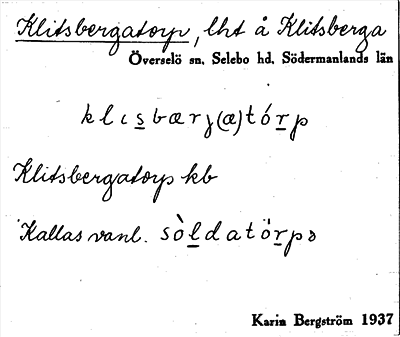 Klitsbergatorp, lht å Klitsberga
Överselö sn. Selebo hd. Södermanlands län
klɩs̲bærȷ(æ)tór̲p
Klitsbergatorp kb
Kallas vanl. sòl̲datör̲pə
Karin Bergström 1937